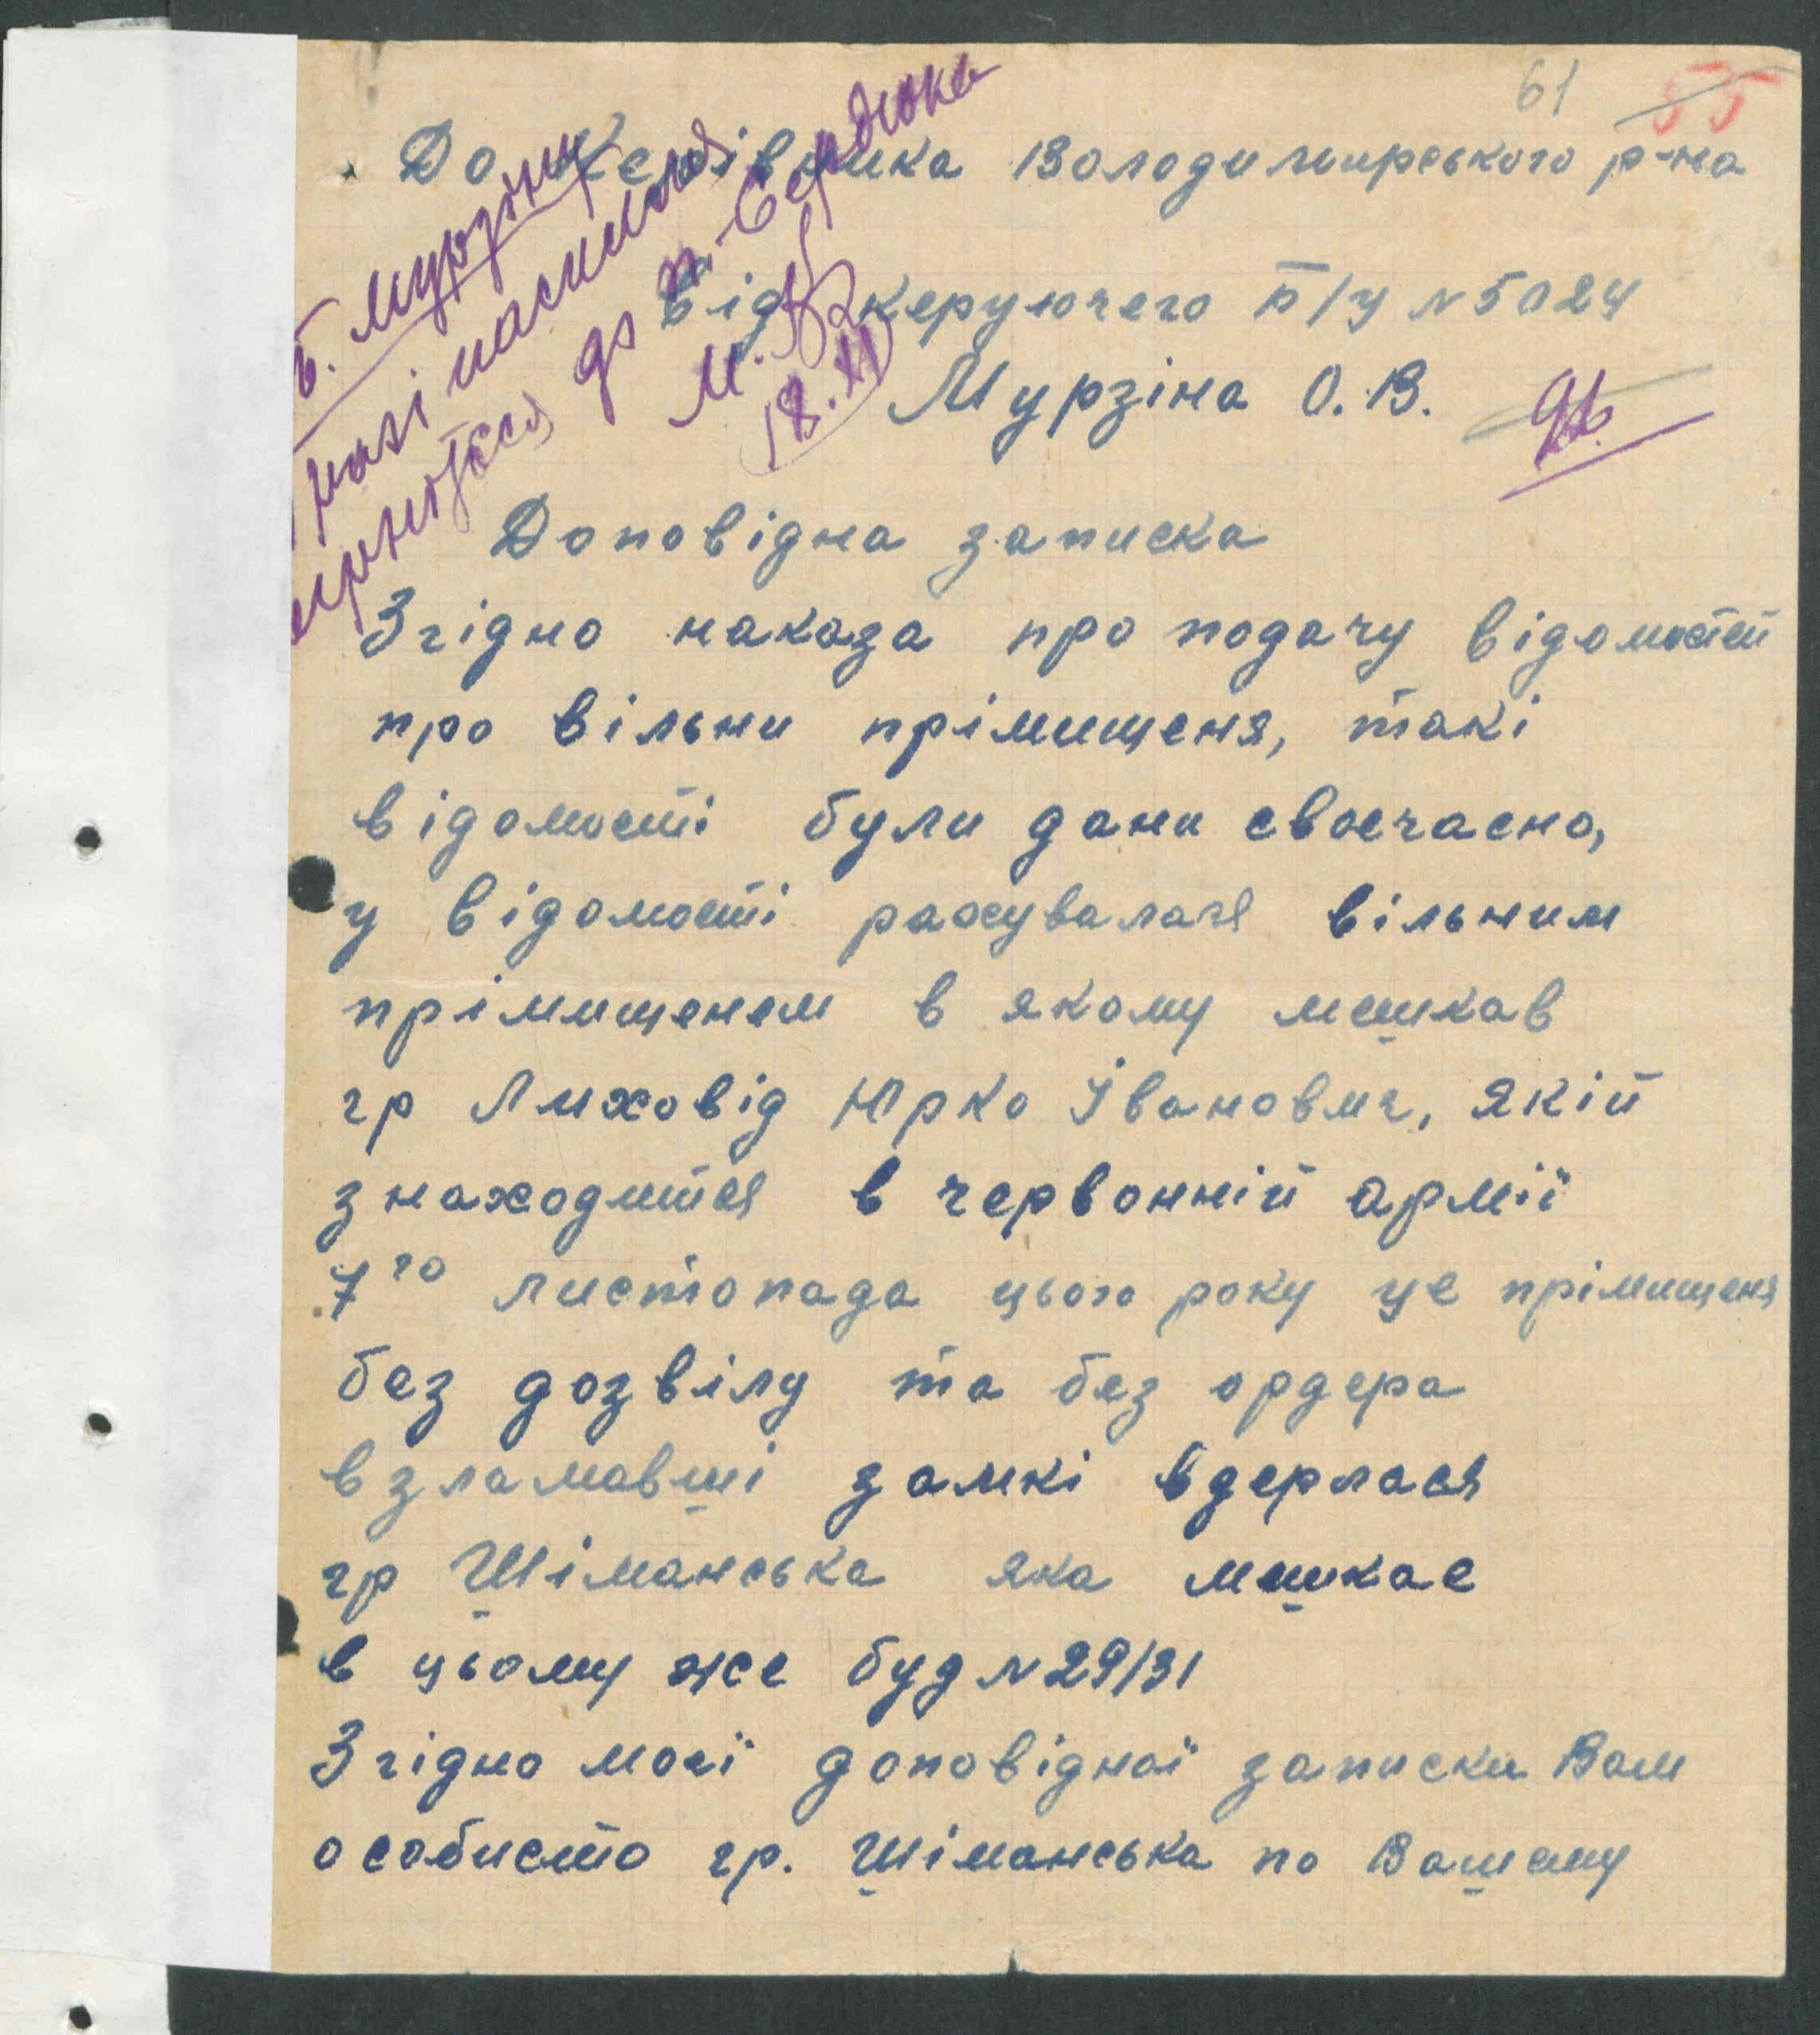 61 55
До Керівника Володимирського р-на
від керуючего Б/У №5024
Мурзіна О.В.
Мурзіну
до п. Сердюка
18.XI
Доповідна записка
Згідно наказа про подачу відомостей
про вільни прімищеня, такі
відомості були дани своєчасно,
у відомості рахувалася вільним
прімищенем в якому мешкав
гр Лиховід Юрко Іванович, якій
знаходится в червонній армії
7го листопада цього року це прімищеня
без дозвілу та без ордера
взламавші замкі вдерлася
гр Шіманська яка мешкає
в цьому же буд №29/31
Згідно моеї доповідної записки Вам
особисто гр. Шіманська по Вашему